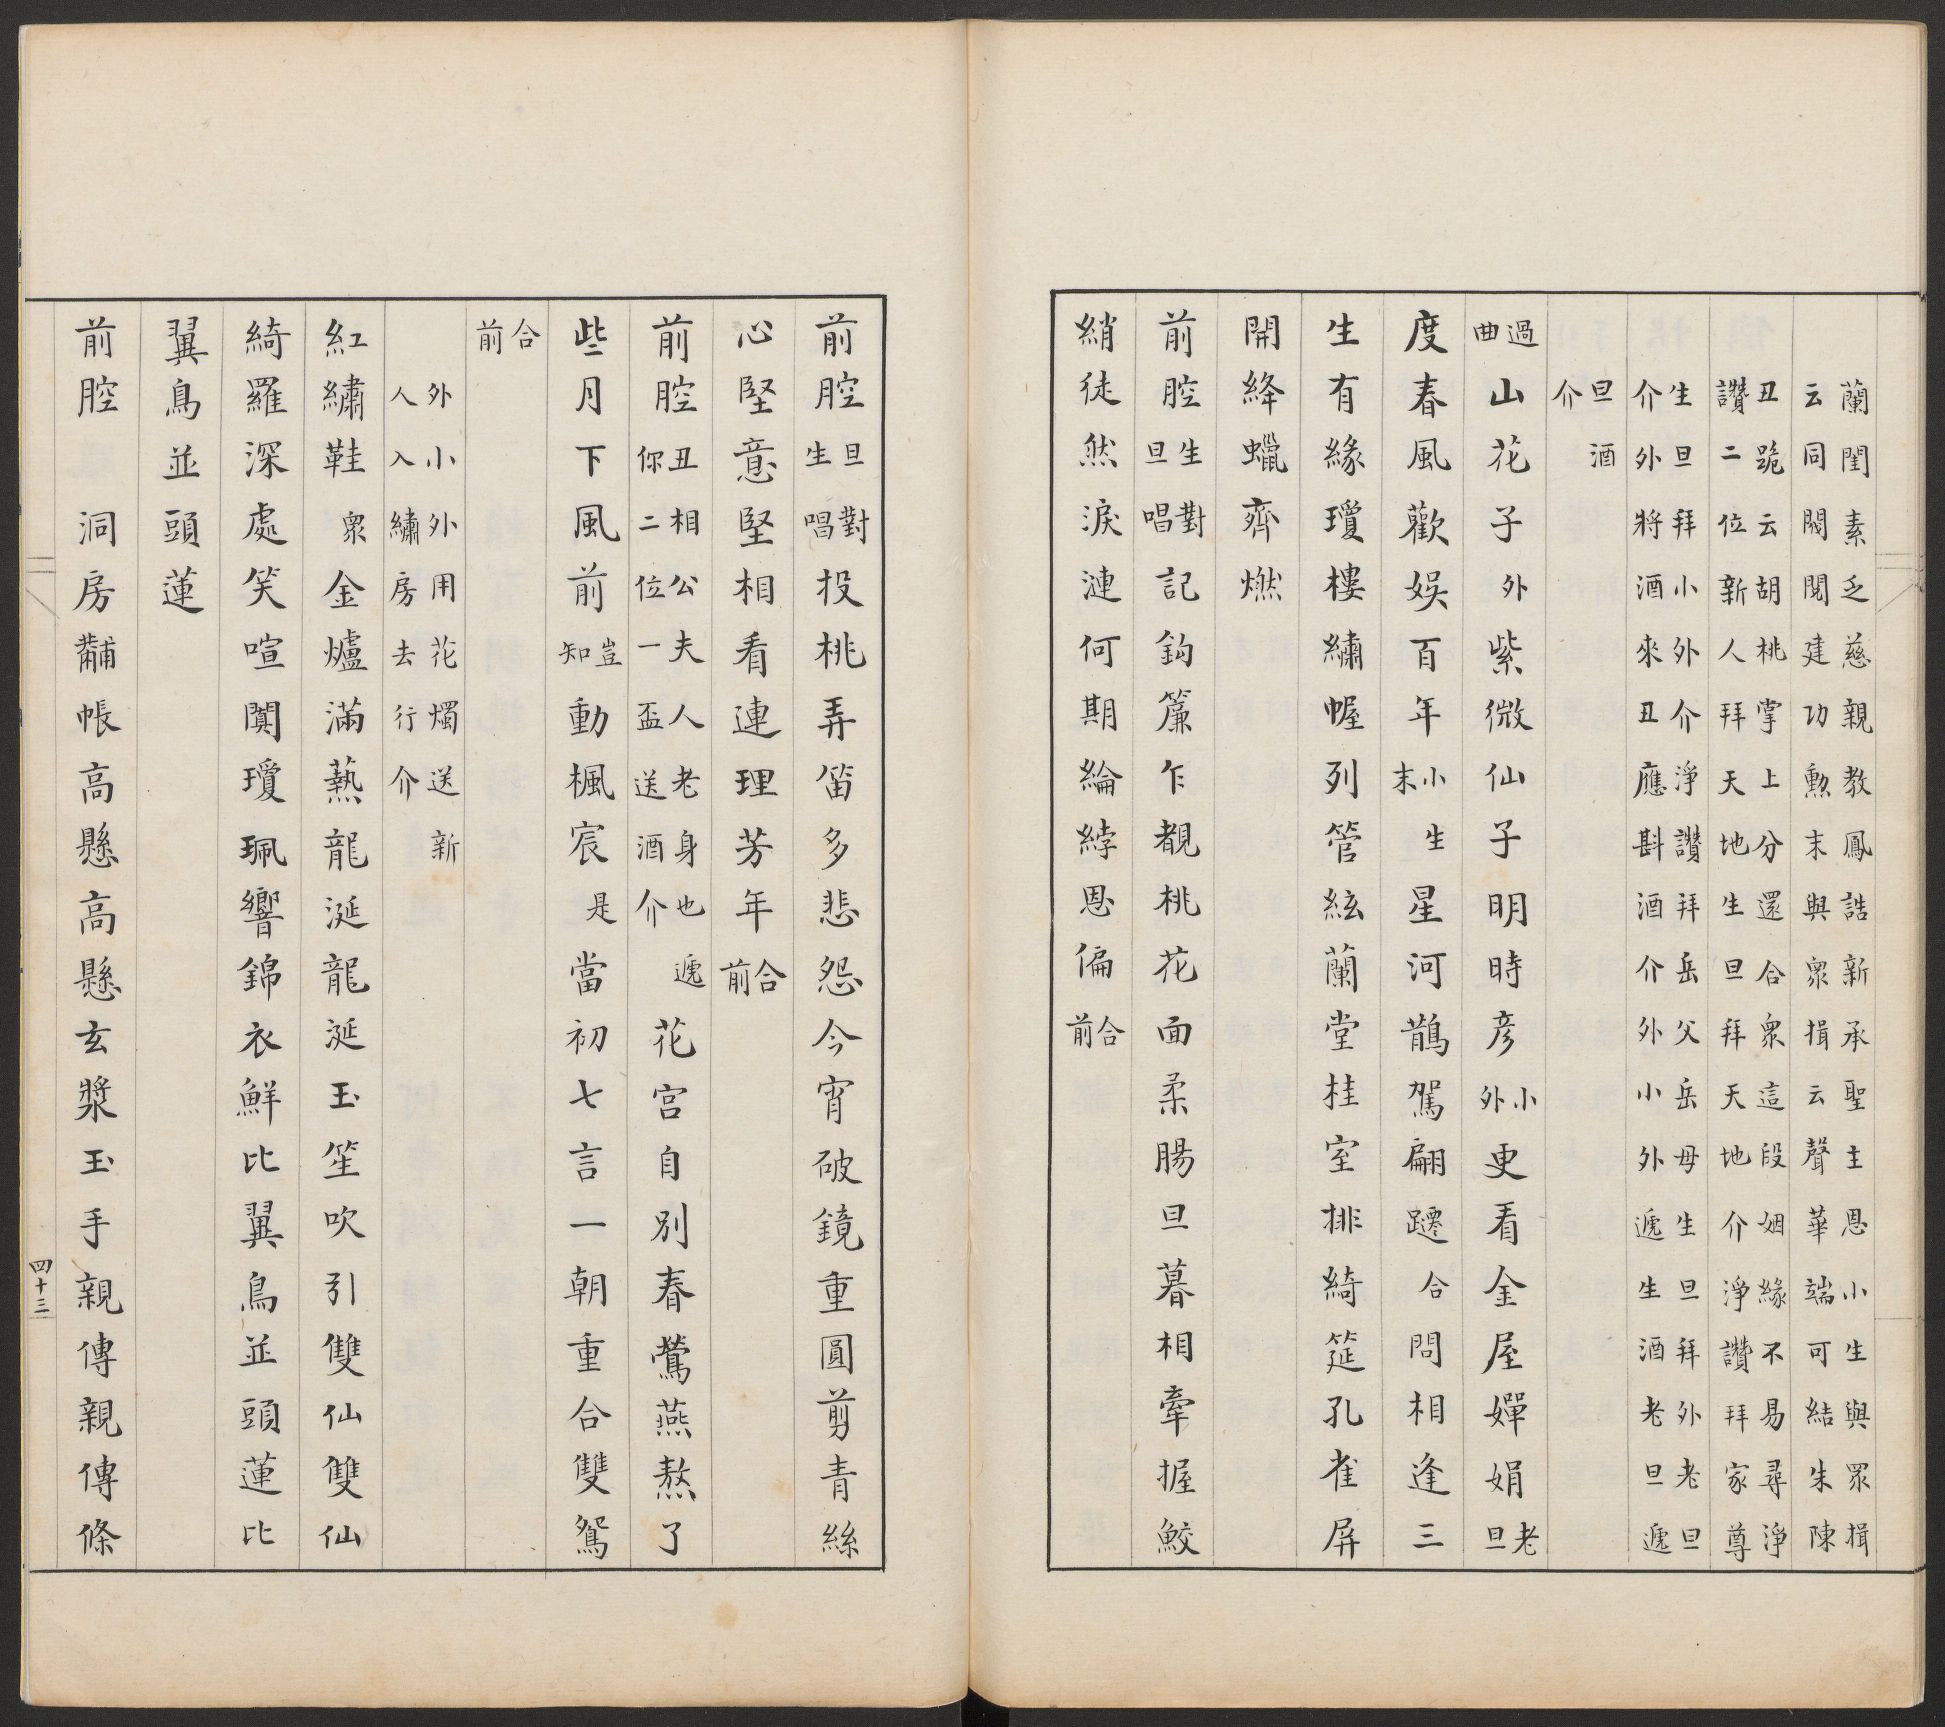 蘭閨素乏慈親教鳳誥新承聖主恩小生與眾揖
云同閥閱建功勲末與眾揖云聲華端可結朱陳
丑跪云胡桃掌上分還合衆這段姻緣不易尋淨
讚二位新人拜天地生旦拜天地介淨讚拜家尊
生旦拜小外介淨讚拜岳父岳母生旦拜外老旦
介外將酒來丑應斟酒介外小外遞生酒老旦遞
旦酒
介
過曲山花子外紫微仙子明時彦小外更看金屋嬋娟老旦
度春風歡娛百年小末生星河鵲駕翩躚合問相逢三
生有緣瓊樓繡幄列管絃蘭堂桂室排綺筵孔雀屏
開絳蠟齊燃
前腔生旦對唱記鈎簾乍覩桃花面柔腸旦暮相牽握鮫
綃徒然淚漣何期綸綍恩偏合前
前腔旦生對唱投桃弄笛多悲怨今宵破鏡重圓剪青絲
心堅意堅相看連理芳年合前
前腔丑相公夫人老身也遞你二位一盃送酒介花宫自别春鶯燕熬了
些月下風前豈知動楓宸是當初七言一朝重合雙鴛
合前
外小外用花燭送新
人入繡房去行介
紅繡鞋衆金爐滿爇龍涎龍涎玉笙吹引雙仙雙仙
綺羅深處笑喧闐瓊珮響錦衣鮮比翼鳥並頭蓮比
翼鳥並頭蓮
前腔洞房黼帳高懸高懸玄漿玉手親傳親傳條
四十三